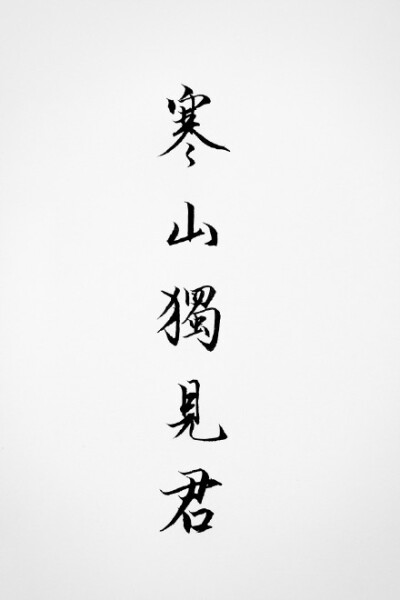 寒山獨見君